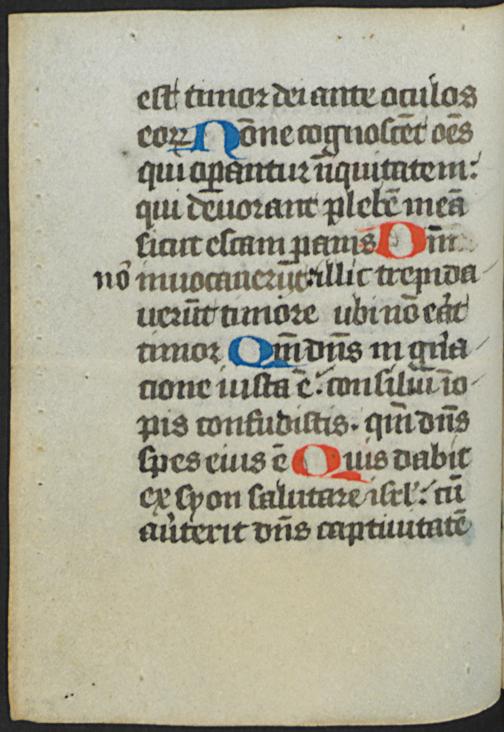 est timor dei ante oculos
eorꝝ Nōne cognoscēt oēs
qui oꝑantur īiquitatem:
qui devorant plebē meā
sicut escam panis Dm̄
nō invocaverūt: illic trepida
verūt timore ubi nō erāt
timor Qm̄ dn̄s in gn̄a
cione iusta ē: consiliū īo
pis confudistis. qm̄ dn̄s
spes eius ē Quis dabit
ex syon salutare isrl̄: cū
av̓terit dn̄s captivitatē